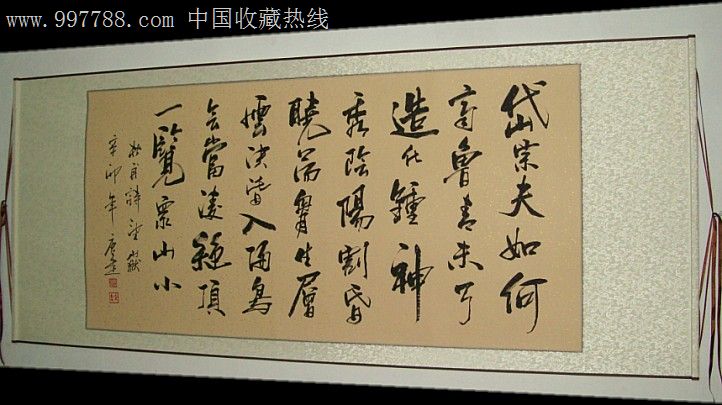 www.997788.com 中国收藏热线
岱宗夫如何
齊魯青未了
造化鍾神
秀陰陽割昏
曉蕩胸生層
雲決眥入歸鳥
會當凌絕頂
一覽眾山小
杜甫詩望嶽
辛卯年